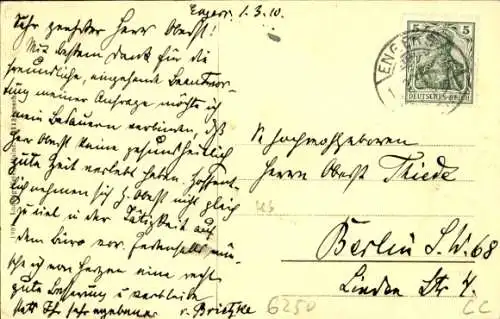 Engers. 1. 3. 10.
Sehr geehrter Herr Oberst!
Mit bestem Dank für die
freundliche, eingehende Beantwor-
tung meiner Anfrage möchte ich
mein Bedauern verbinden, daß
Herr Oberst keine gesundheitlich
gute Zeit verlebt haben. Hoffent-
lich nehmen sich H. Oberst nicht gleich
zu viel in der Tätigkeit auf
dem Büro vor. Jedenfalls wün-
sche ich von Herzen eine recht
gute Besserung u. verbleibe
stets Ihr sehr ergebener
v. Brietzke
5 5
DEUTSCHES REICH
ENGERS
Sr. Hochwohlgeboren
Herrn Oberst Thiede
Berlin S.W. 68
Linden Str 4.
6250
CC